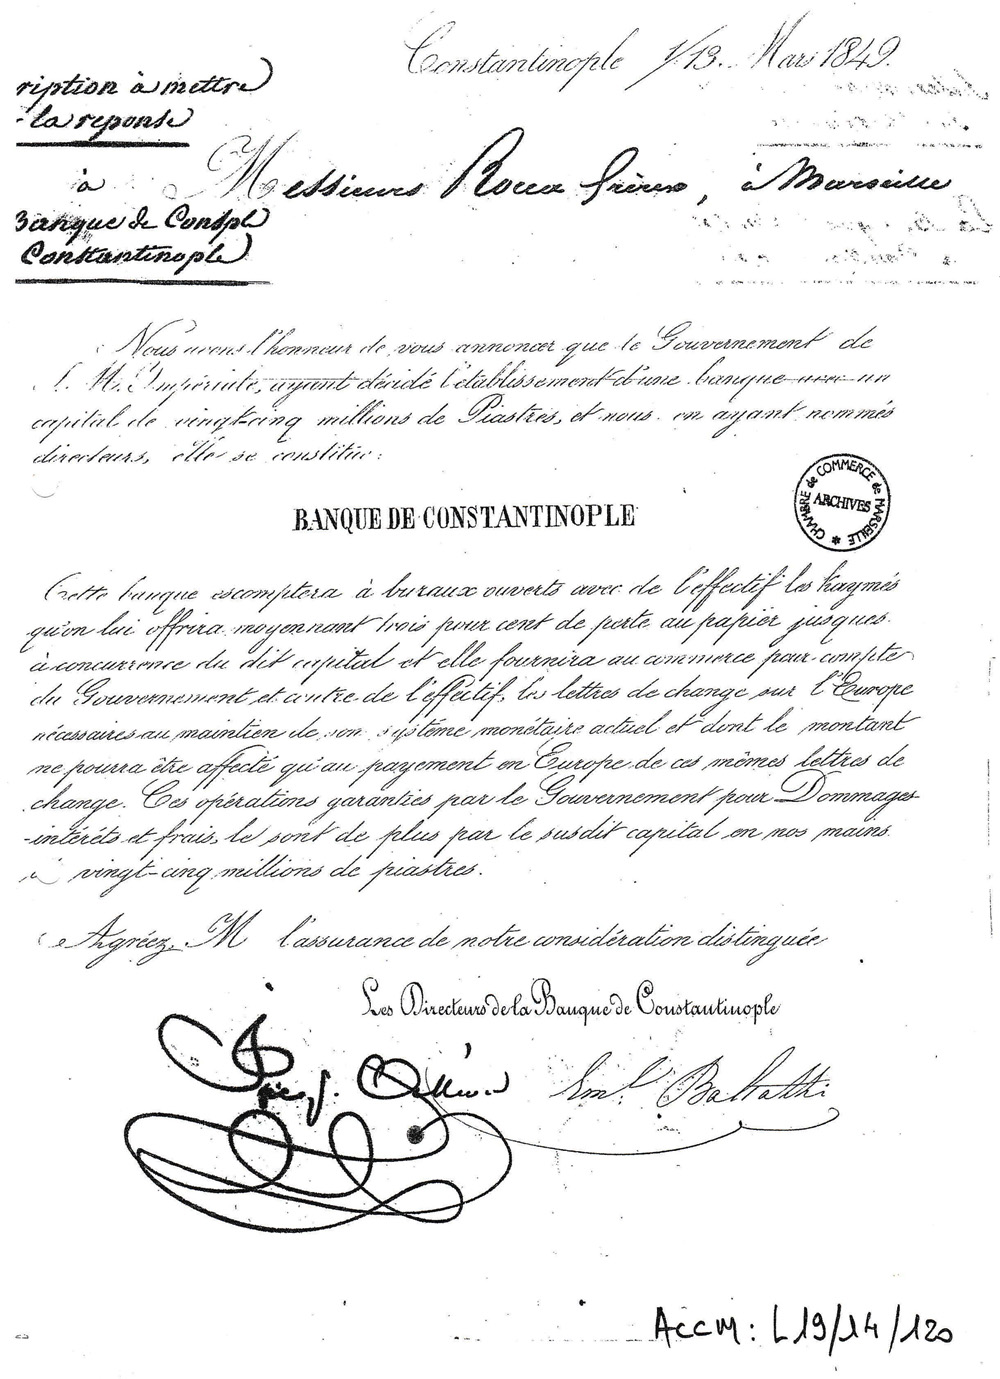 Constantinople 1/13. Mars 1849.
ription à mettre
la reponse
à
Banque de Constple
Constantinople
Messieurs Rocca frères, à Marseille
Nous avons l'honneur de vous annoncer que le Gouvernement de
S. M. Impériale, ayant décidé l'établissement d'une banque avec un
capital de vingt-cinq millions de Piastres, et nous en ayant nommés
directeurs, elle se constitue:
BANQUE DE CONSTANTINOPLE
CHAMBRE de COMMERCE de MARSEILLE
ARCHIVES
Cette banque escomptera à buraux ouverts avec de l'effectif les Kaymés
qu'on lui offrira moyennant trois pour cent de perte au papier jusques
à concurrence du dit capital et elle fournira au commerce pour compte
du Gouvernement et contre de l'effectif, les lettres de change sur l'Europe
nécessaires au maintien de son système monétaire actuel et dont le montant
ne pourra être affecté qu'au payement en Europe de ces mêmes lettres de
change. Ces opérations garanties par le Gouvernement pour Dommages-
-intérêts et frais, le sont de plus par le susdit capital en nos mains
vingt-cinq millions de piastres.
Agréez, M l'assurance de notre considération distinguée
Les Directeurs de la Banque de Constantinople
Eml. Baltatthi
ACCM: L19/14/120